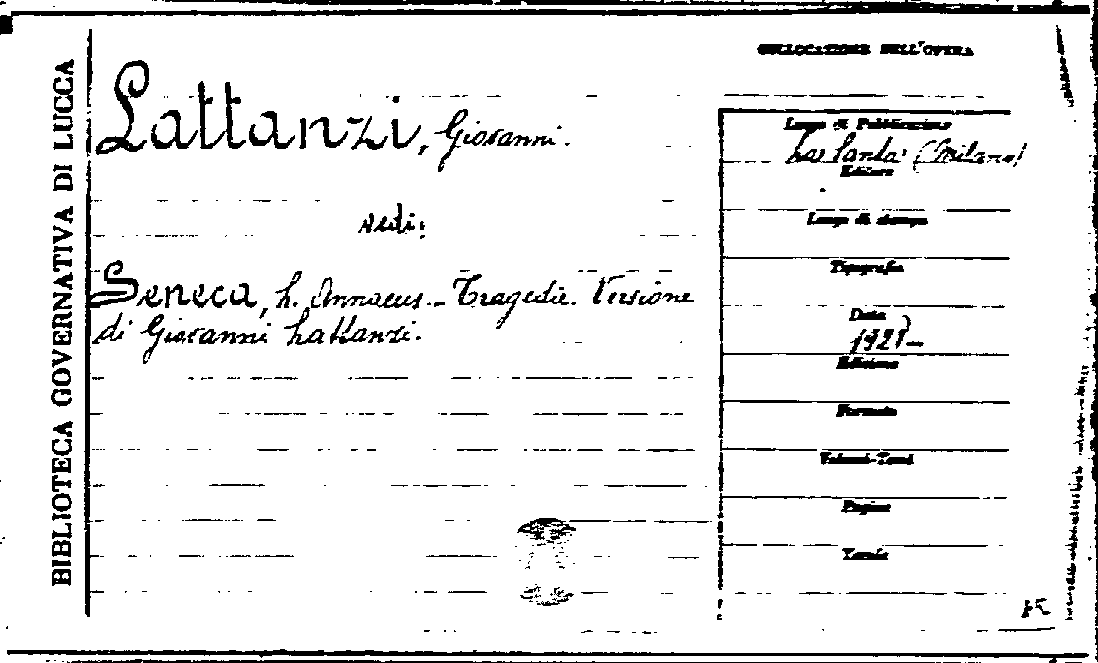 BIBLIOTECA GOVERNATIVA DI LUCCA
COLLOCAZIONE DELL'OPERA
Lattanzi, Giovanni.
vedi:
Seneca, L. Annaeus. - Tragedie. Versione
di Giovanni Lattanzi.
Luogo di Pubblicazione
La Santa (Milano)
Editore
Luogo di stampa
Tipografia
Data
Edizione
Formato
Volumi-Tomi
Pagine
Tavole